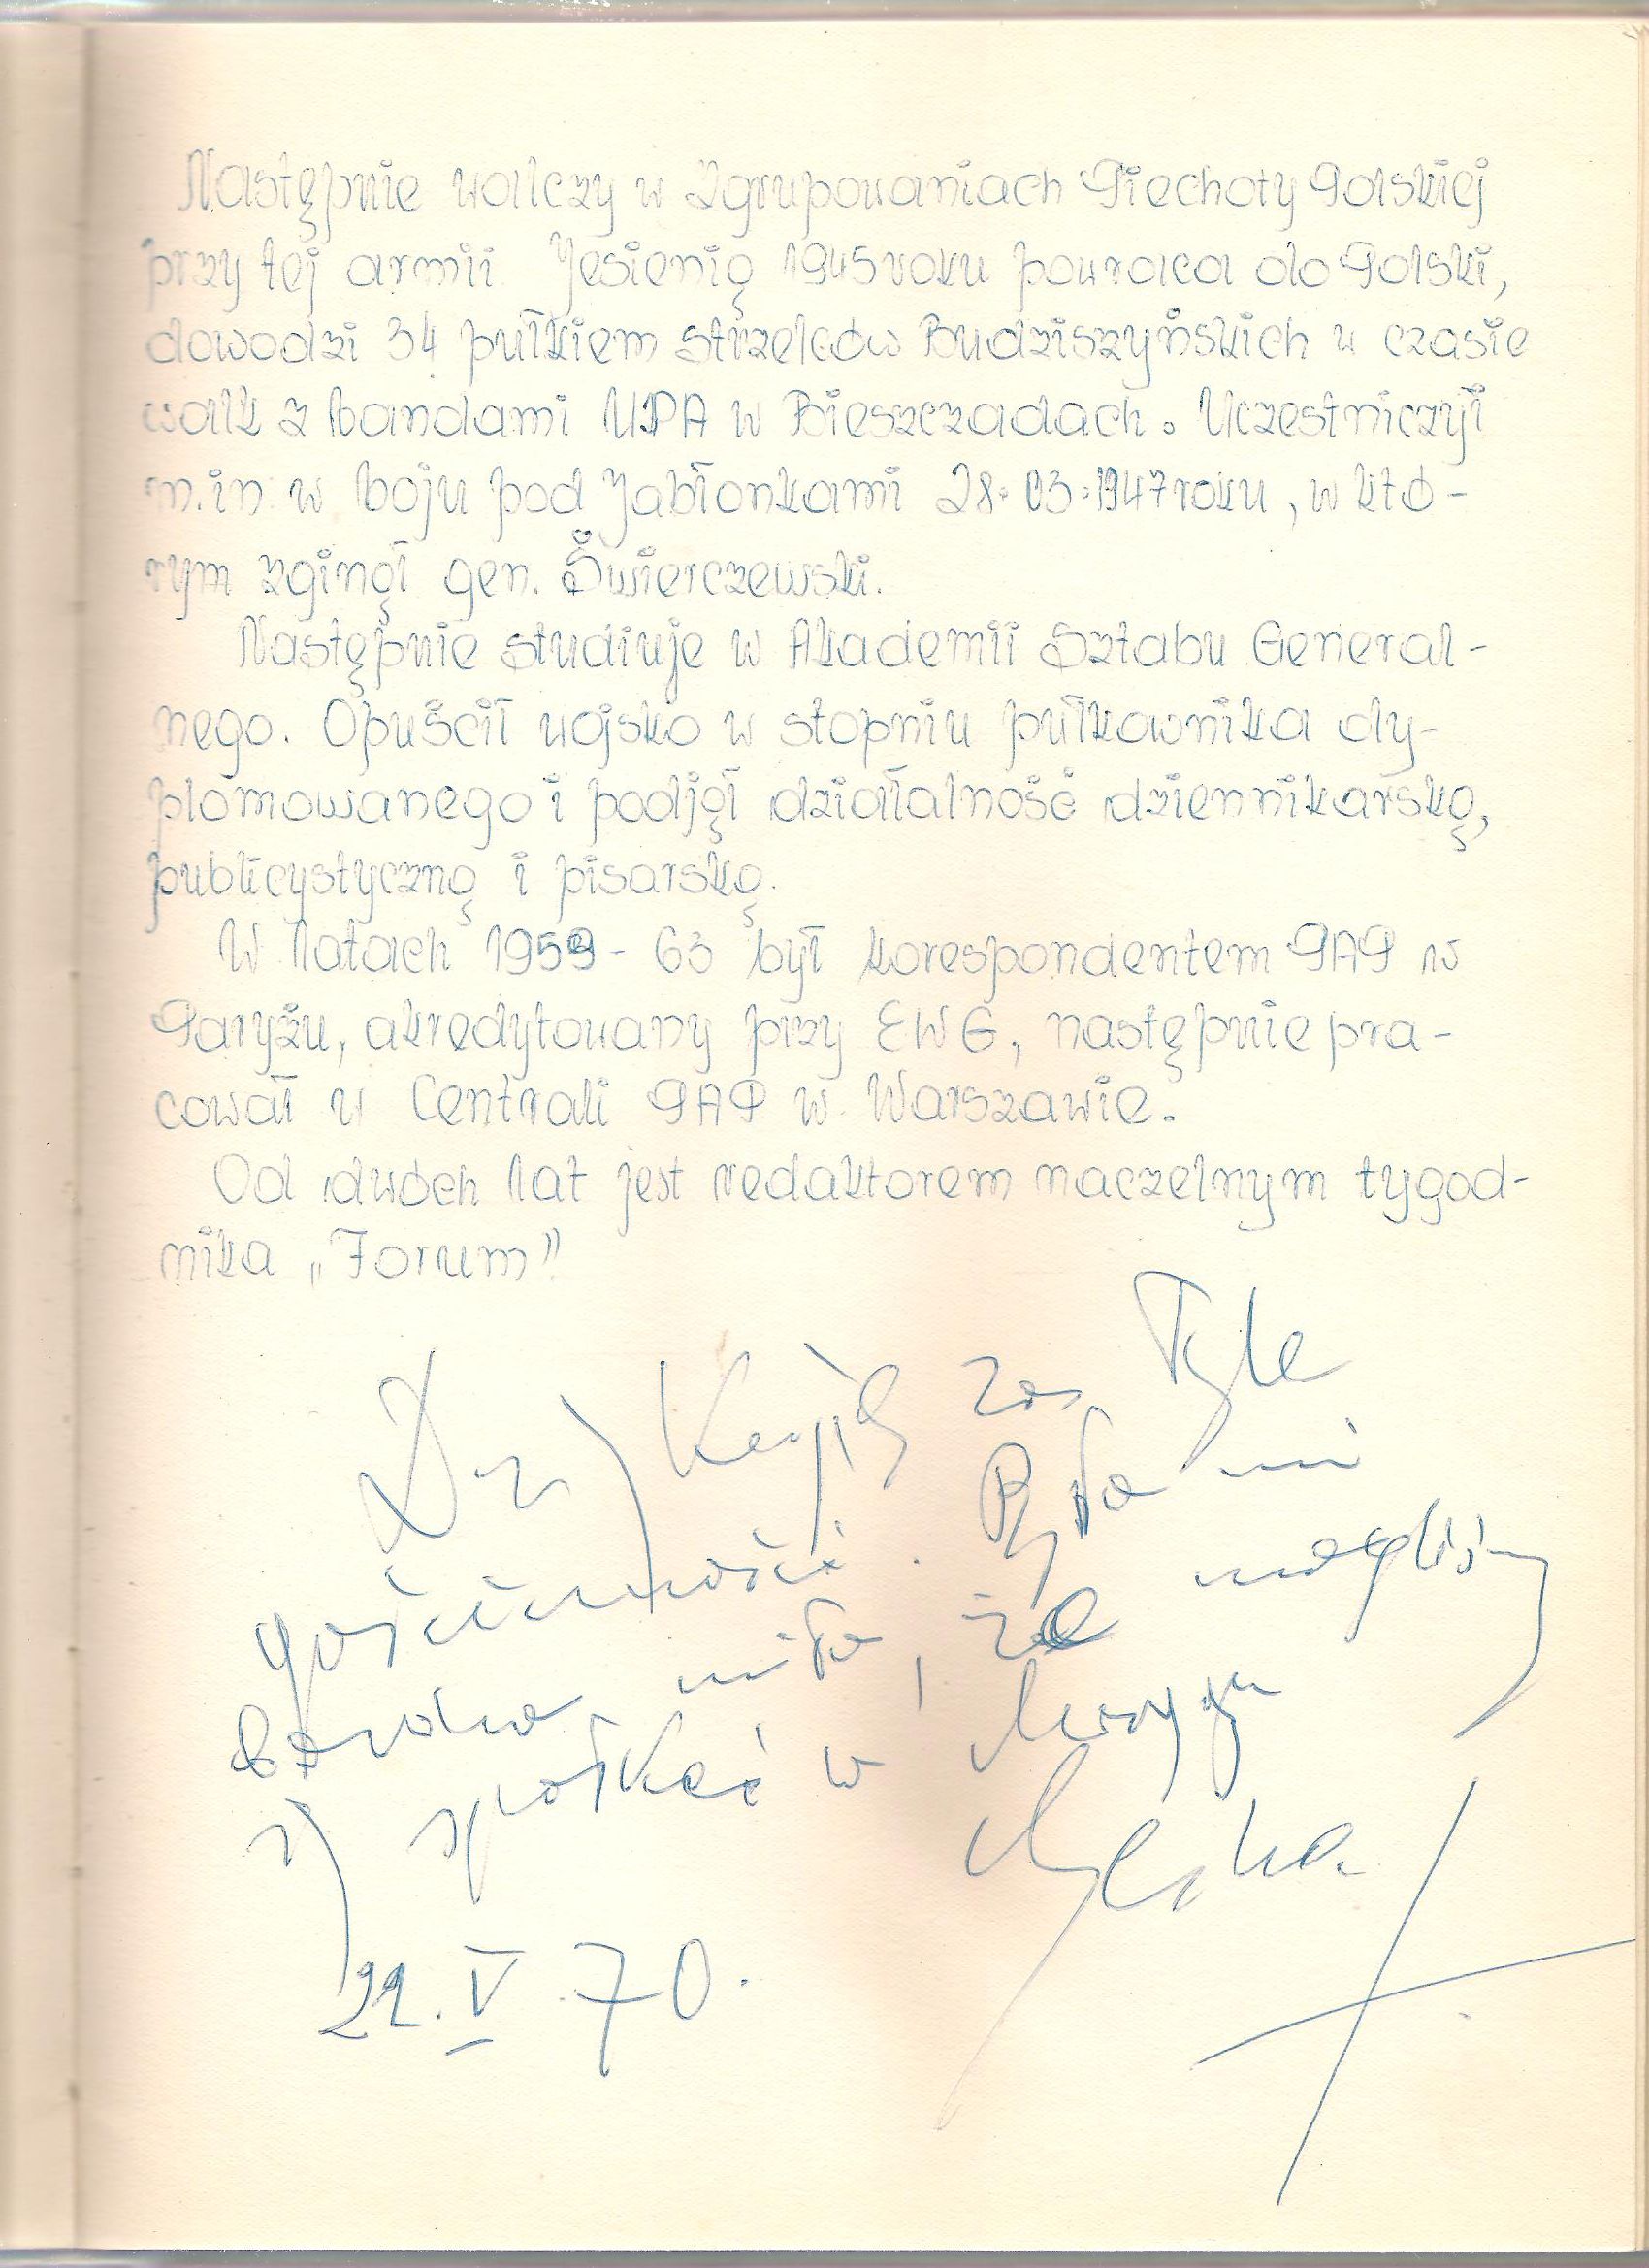 Następnie walczy w Zgrupowaniach Piechoty Polskiej
przy tej armii. Jesienią 1945 roku powraca do Polski,
dowodzi 34 pułkiem strzelców Budziszyńskich w czasie
walk z bandami UPA w Bieszczadach. Uczestniczył
m.in. w boju pod Jabłonkami 28.03.1947 roku, w któ-
rym zginął gen. Świerczewski.
Następnie studiuje w Akademii Sztabu General-
nego. Opuścił wojsko w stopniu pułkownika dy-
plomowanego i podjął działalność dziennikarską,
publicystyczną i pisarską.
W latach 1959-63 był korespondentem PAP w
Paryżu, akredytowany przy EWG, następnie pra-
cował w Centrali PAP w Warszawie.
Od dwóch lat jest redaktorem naczelnym tygod-
nika „Forum"
za Tyle
gościnności. Było mi
bardzo miło, że mogliśmy
spotkać w
22. V. 70.